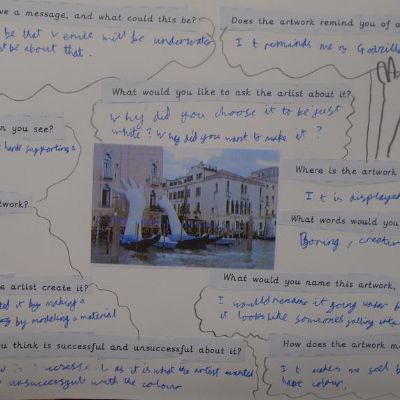 ve a message, and what could this be?
be that Venice will be underwater
st be about that.
Does the artwork remind you of a
It reminds me of Godzilla
What would you like to ask the artist about it?
Why did you choose it to be just
white? Why did you want to make it?
n you see?
hands supporting a
Where is the artwork
It is displayed
twork?
What words would you
Boring, creative
e artist create it?
ted it by making a
by modeling a material
What would you name this artwork,
I would rename it going water
it looks like someones falling into
ou think is successful and unsuccessful about it?
is successful as it is what the artist wanted
unsuccessful with the colour
How does the artwork ma
It makes me feel
have colour.